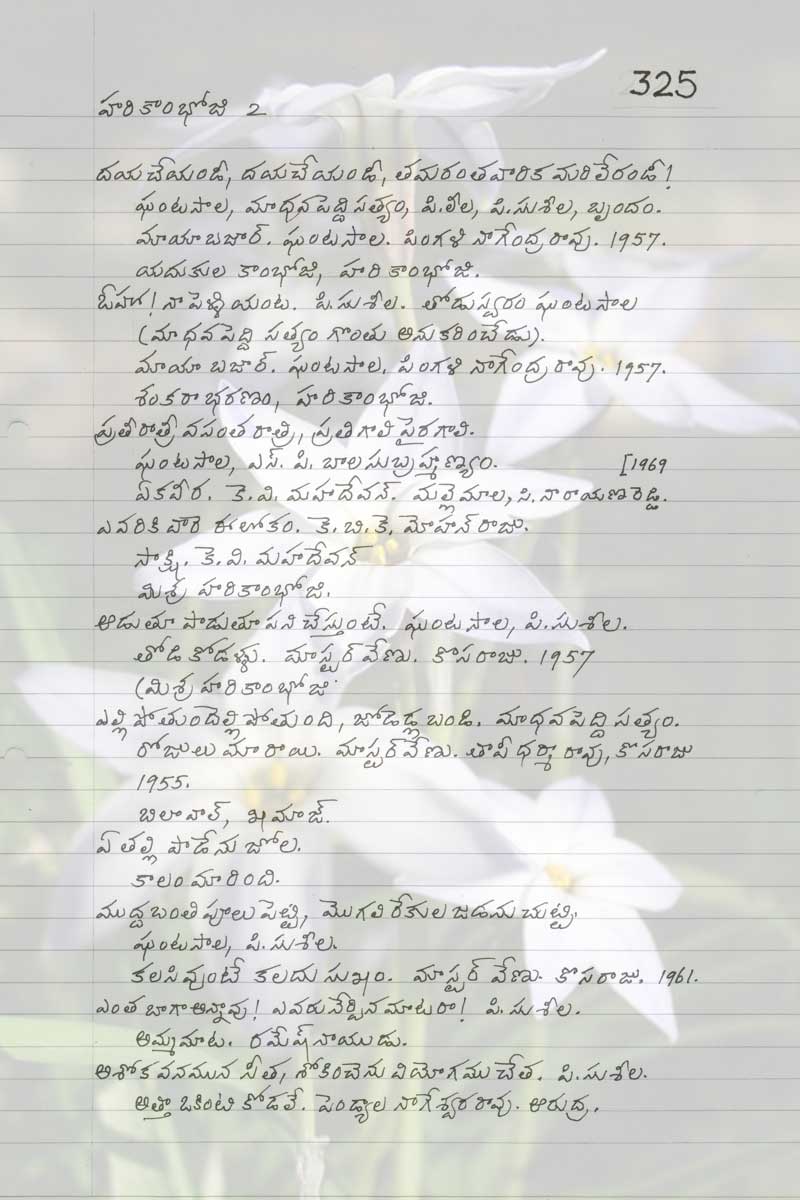 325
హరికాంభోజి 2
దయచేయండి, దయచేయండి, తమరంతవారిక మరిలేరండి!
ఘంటసాల, మాధవపెద్ది సత్యం, పి.లీల, పి.సుశీల, బృందం.
మాయాబజార్. ఘంటసాల. పింగళి నాగేంద్రరావు. 1957.
యదుకుల కాంభోజి, హరి కాంభోజి.
ఓహో! నా పెళ్ళియంట. పి.సుశీల. తోడుస్వరం ఘంటసాల
(మాధవపెద్ది సత్యం గొంతు అనుకరించేడు).
మాయా బజార్. ఘంటసాల. పింగళి నాగేంద్రరావు. 1957.
శంకరాభరణం, హరికాంభోజి.
ప్రతీరాత్రి వసంతరాత్రి, ప్రతిగాలి పైరగాలి.
ఘంటసాల, ఎస్. పి. బాలసుబ్రహ్మణ్యం. [1969
ఏకవీర. కె.వి. మహదేవన్. మల్లెమాల, సి.నారాయణరెడ్డి.
ఎవరికి వారె ఈలోకం. కె. బి. కె. మోహన్ రాజు.
సాక్షి. కె.వి. మహదేవన్
మిశ్ర హరికాంభోజి.
ఆడుతూ పాడుతూ పనిచేస్తుంటే. ఘంటసాల, పి.సుశీల.
తోడి కోడళ్ళు. మాస్టర్ వేణు. కొసరాజు. 1957
(మిశ్ర హరికాంభోజి
ఎల్లిపోతుందెల్లిపోతుంది, జోడెడ్లబండి. మాధవపెద్ది సత్యం.
రోజులు మారాయి. మాస్టర్ వేణు. తాపీ ధర్మారావు, కొసరాజు
1955.
బిలావల్, ఖమాజ్.
ఏ తల్లి పాడేను జోల.
కాలం మారింది.
ముద్దబంతి పూలు పెట్టి, మొగలి రేకుల జడను చుట్టి.
ఘంటసాల, పి.సుశీల.
కలసివుంటే కలదు సుఖం. మాస్టర్ వేణు. కొసరాజు. 1961.
ఎంత బాగా అన్నావు! ఎవరునేర్పినమాటరా! పి.సుశీల.
అమ్మమాట. రమేష్ నాయుడు.
అశోకవనమున సీత, శోకించెను వియోగము చేత. పి.సుశీల.
అత్తా ఒకింటి కోడలే. పెండ్యాల నాగేశ్వరరావు. ఆరుద్ర.